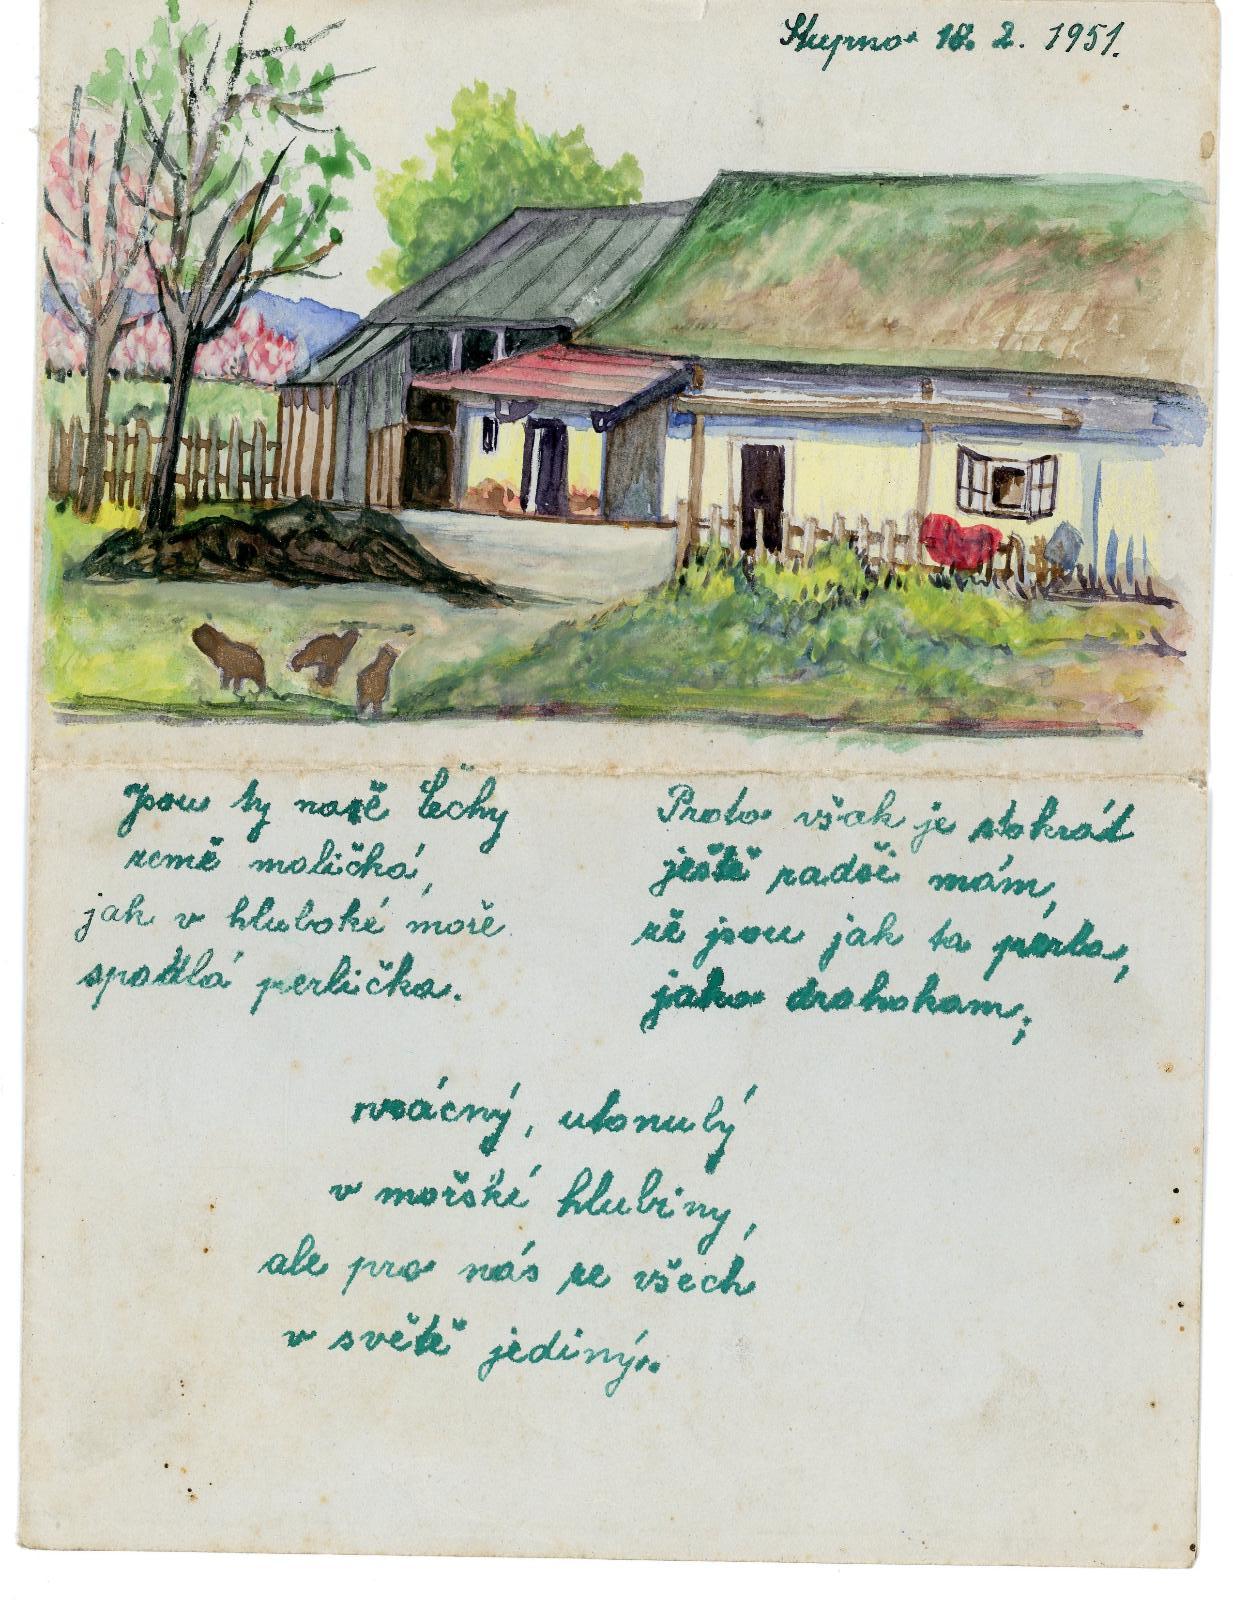 Stupno 18. 2. 1951.
Jsou ty naše Čechy
země maličká,
jak v hluboké moře
spadlá perlička.
Proto však je stokrát
ještě radši mám,
že jsou jak ta perla,
jako drahokam;
vzácný, utonulý
v mořské hlubiny,
ale pro nás ze všech
v světě jediný.